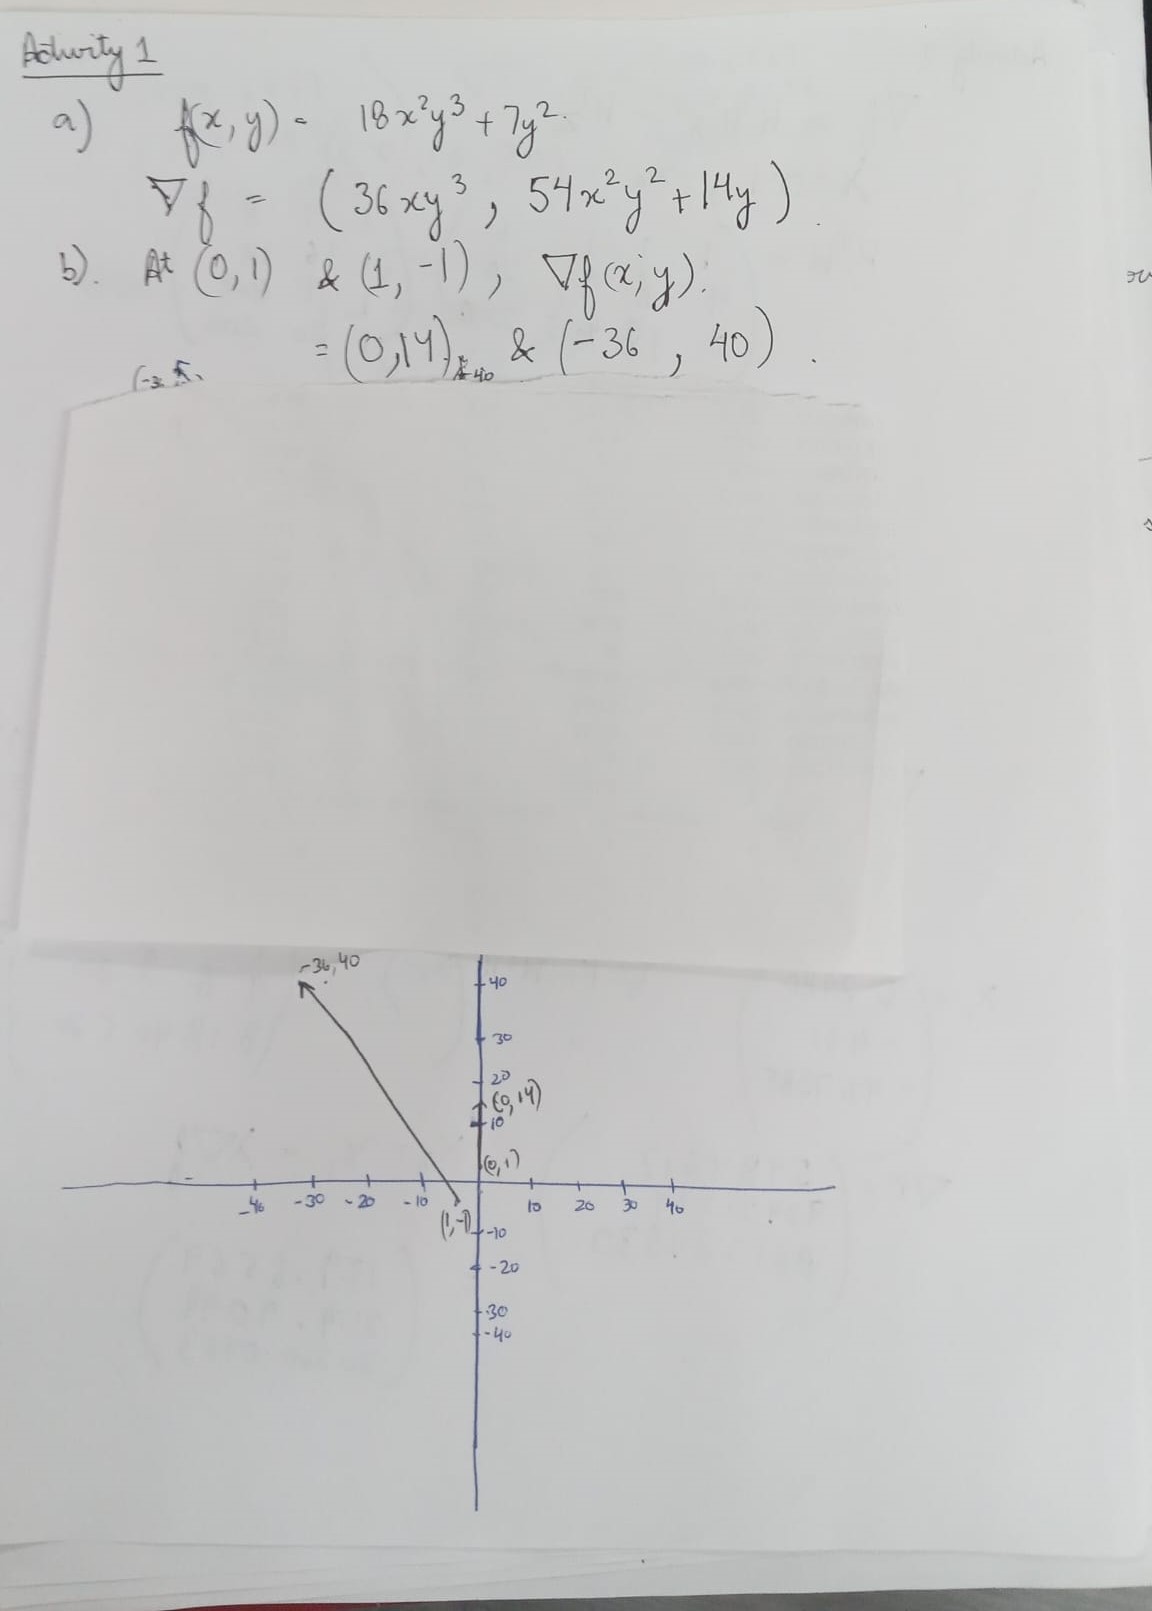 Activity 1
a) f(x, y) = 18x²y³ + 7y².
∇f = (36xy³, 54x²y² + 14y).
b). At (0, 1) & (1, -1), ∇f(x, y).
= (0, 14) & (-36, 40).
-36, 40
40
30
20
(0, 14)
10
(0, 1)
-40 -30 -20 -10 10 20 30 40
(1, -1)
-10
-20
-30
-40